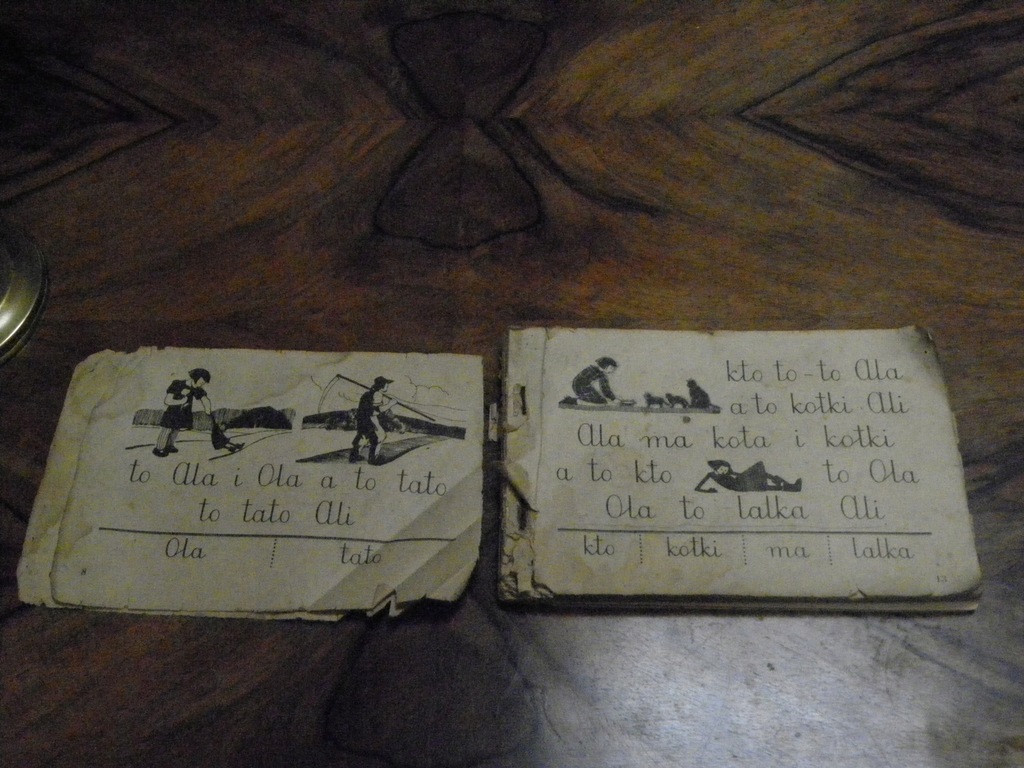 to Ala i Ola a to tato
to tato Ali
Ola tato
8
kto to - to Ala
a to kotki Ali
Ala ma kota i kotki
a to kto to Ola
Ola to lalka Ali
kto kotki ma lalka
13